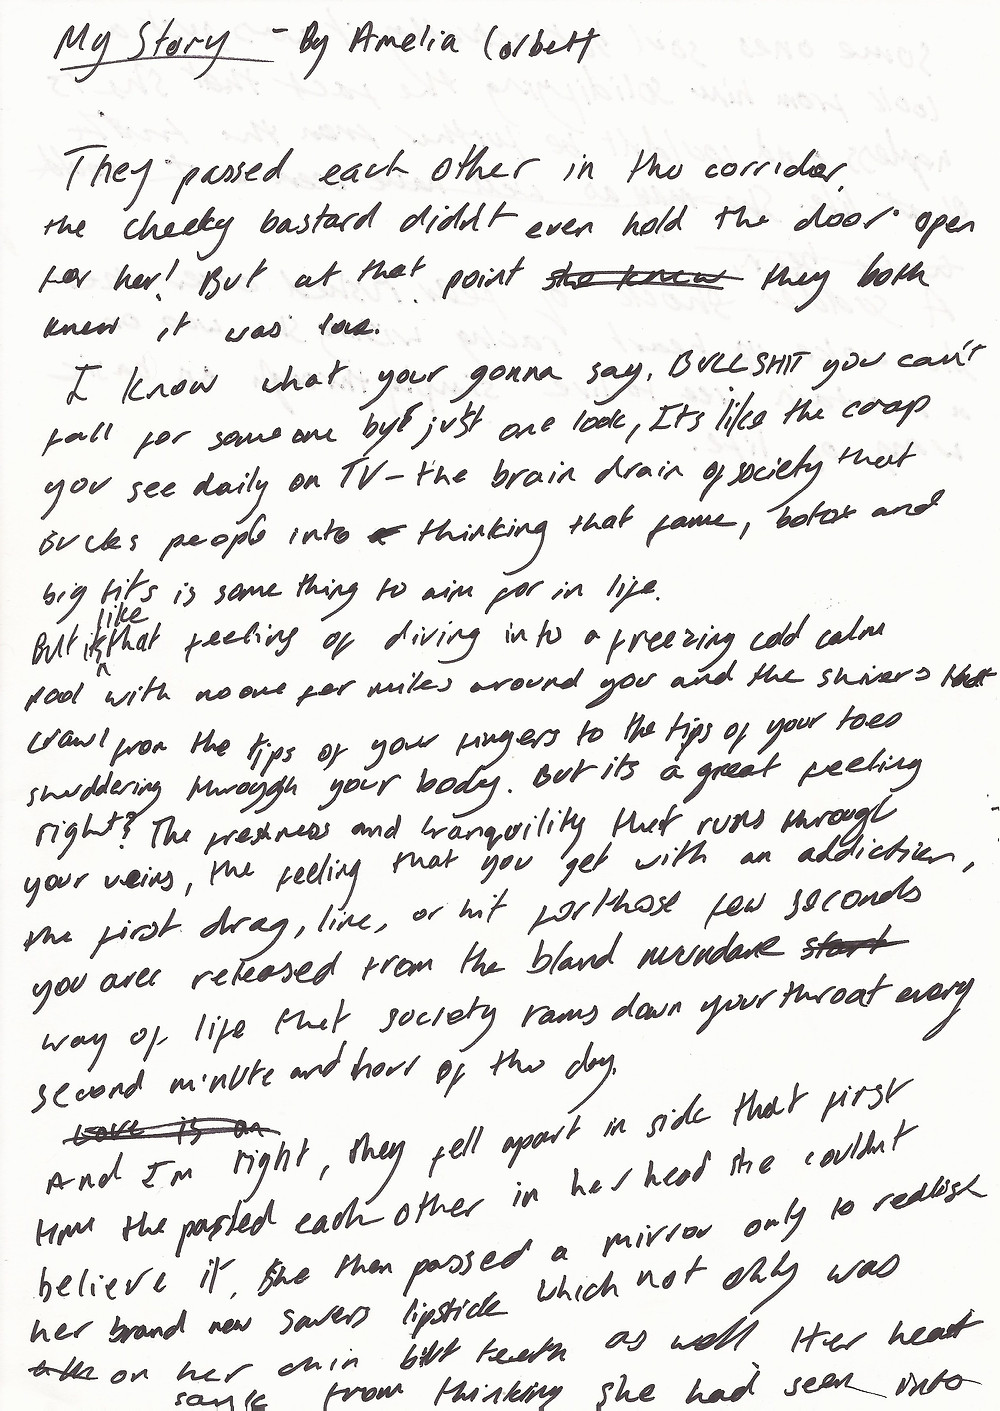 My Story - By Amelia Corbett
They passed each other in the corridor,
the cheeky bastard didnt even hold the door open
for her! But at that point she knew they both
knew it was love.
I know what your gonna say. BULLSHIT you can't
fall for someone by just one look, Its like the crap
you see daily on TV - the brain drain of society that
sucks people into thinking that fame, botox and
big tits is something to aim for in life.
But its like that feeling of diving into a freezing cold calm
pool with no one for miles around you and the shivers that
crawl from the tips of your fingers to the tips of your toes
shuddering through your body. But its a great feeling
right? The freshness and tranquility that runs through
your veins, the feeling that you get with an addiction,
the first drag, line, or hit for those few seconds
you are released from the bland mundane start
way of life that society rams down your throat every
second minute and hour of the day.
Love is an
And I'm right, they fell apart in side that first
time the passed each other in her head she couldnt
believe it. She then passed a mirror only to realise
her brand new savers lipstick which not only was
on her chin but teeth as well Her heart
sank from thinking she had seen into